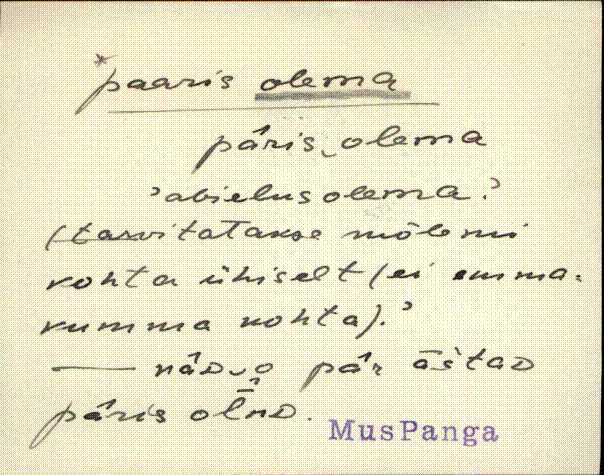 *paaris olema
pá̄ris‿olema
'abielus olema.'
(tarvitatakse mõlemi
kohta ühiselt (ei emma-
kumma kohta).'
— nāD‿jo pá̄r āštaD
pá̄ris olnD.
MusPanga